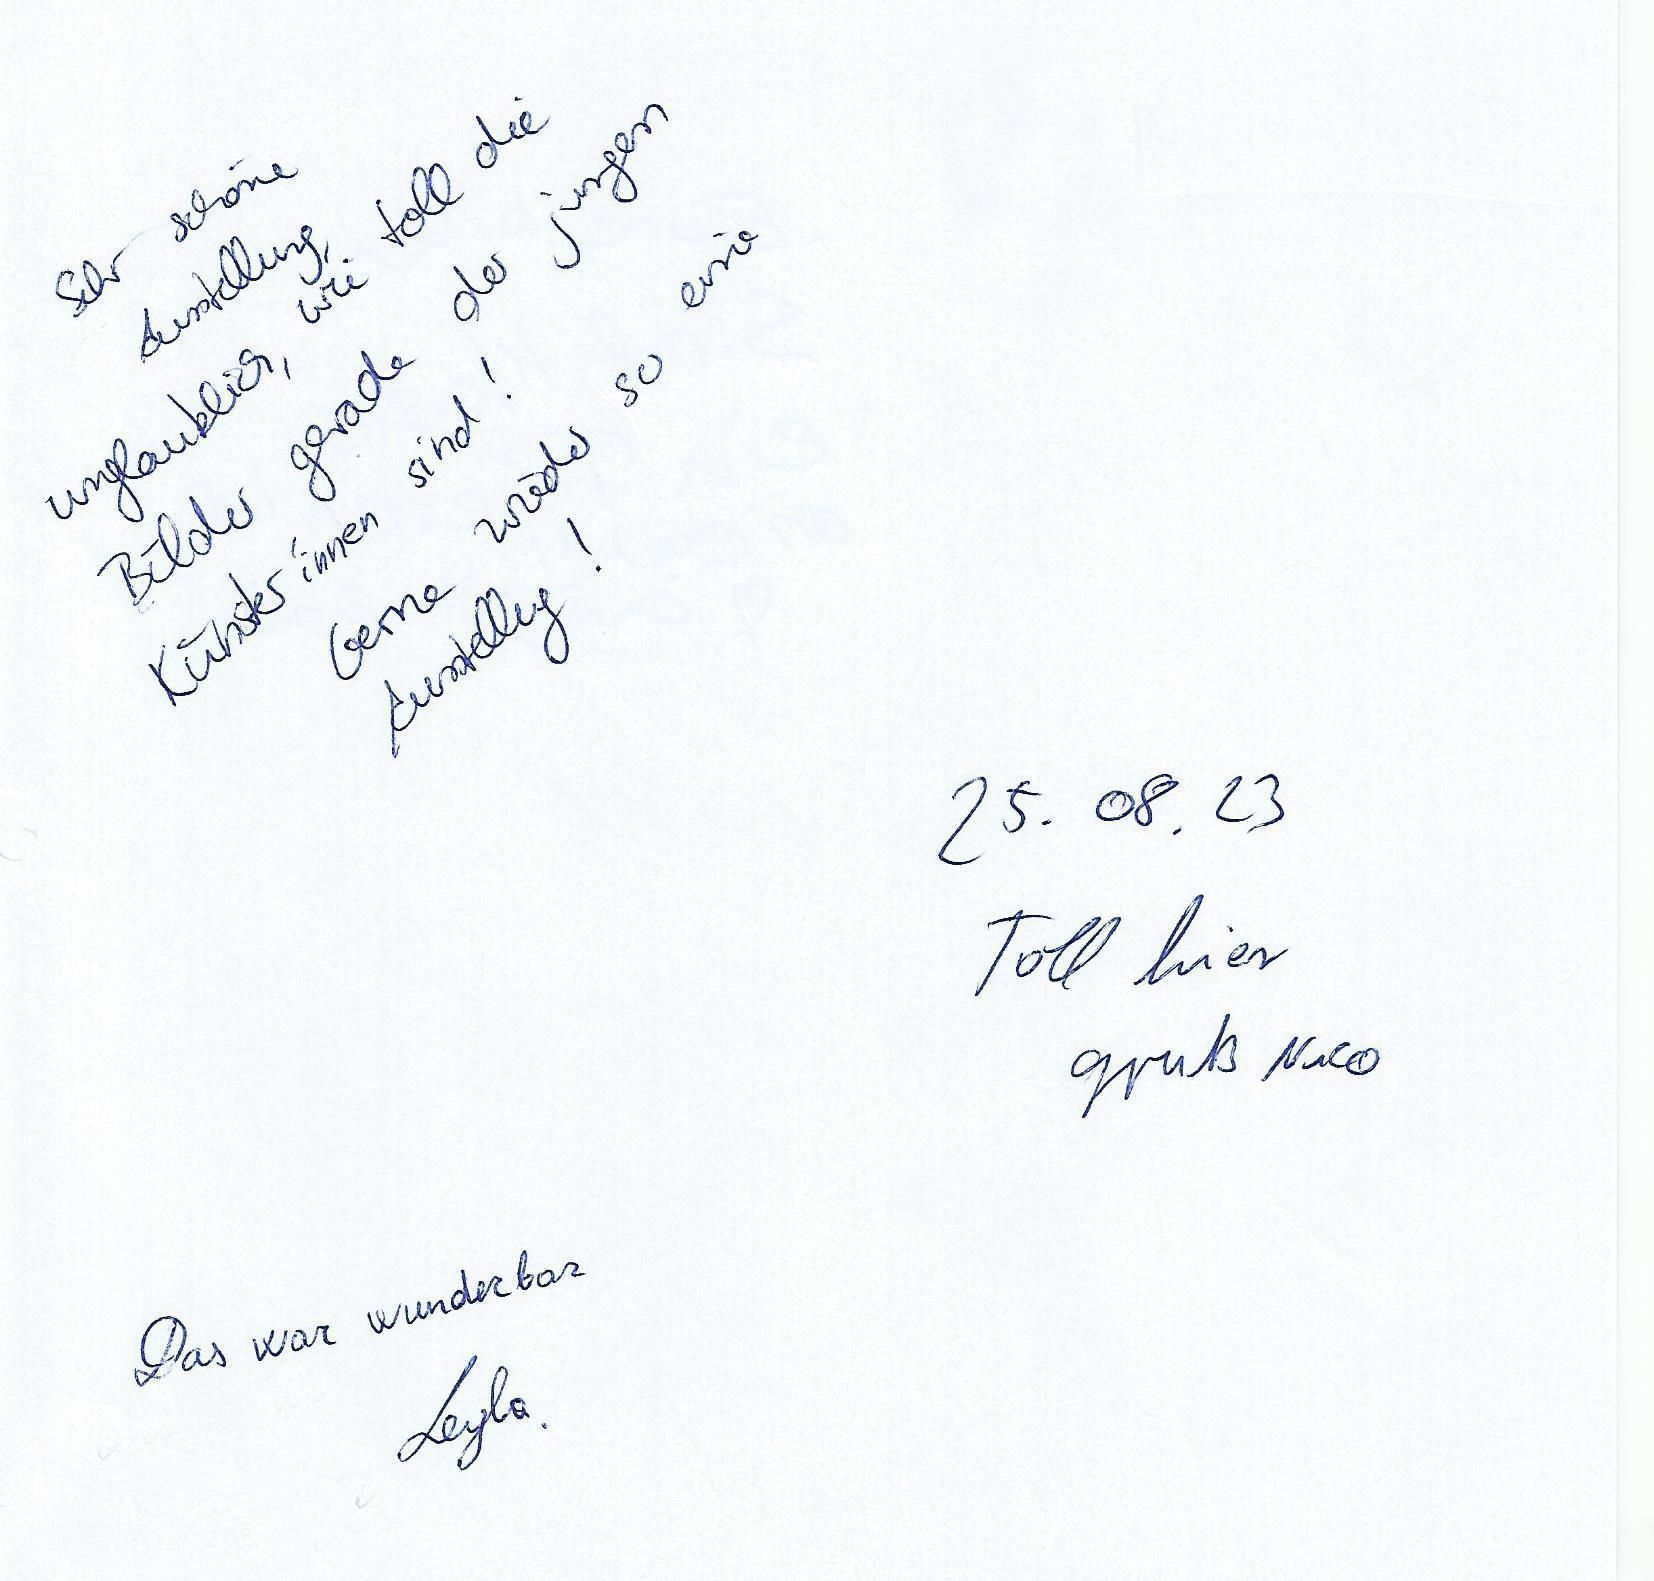 Sehr schöne
Ausstellung,
unglaublich, wie toll die
Bilder gerade der jungen
Künstler innen sind!
Gerne wieder so eine
Ausstellung!
25. 08. 23
Toll hier
gruß Nico
Das war wunderbar
Leyla.